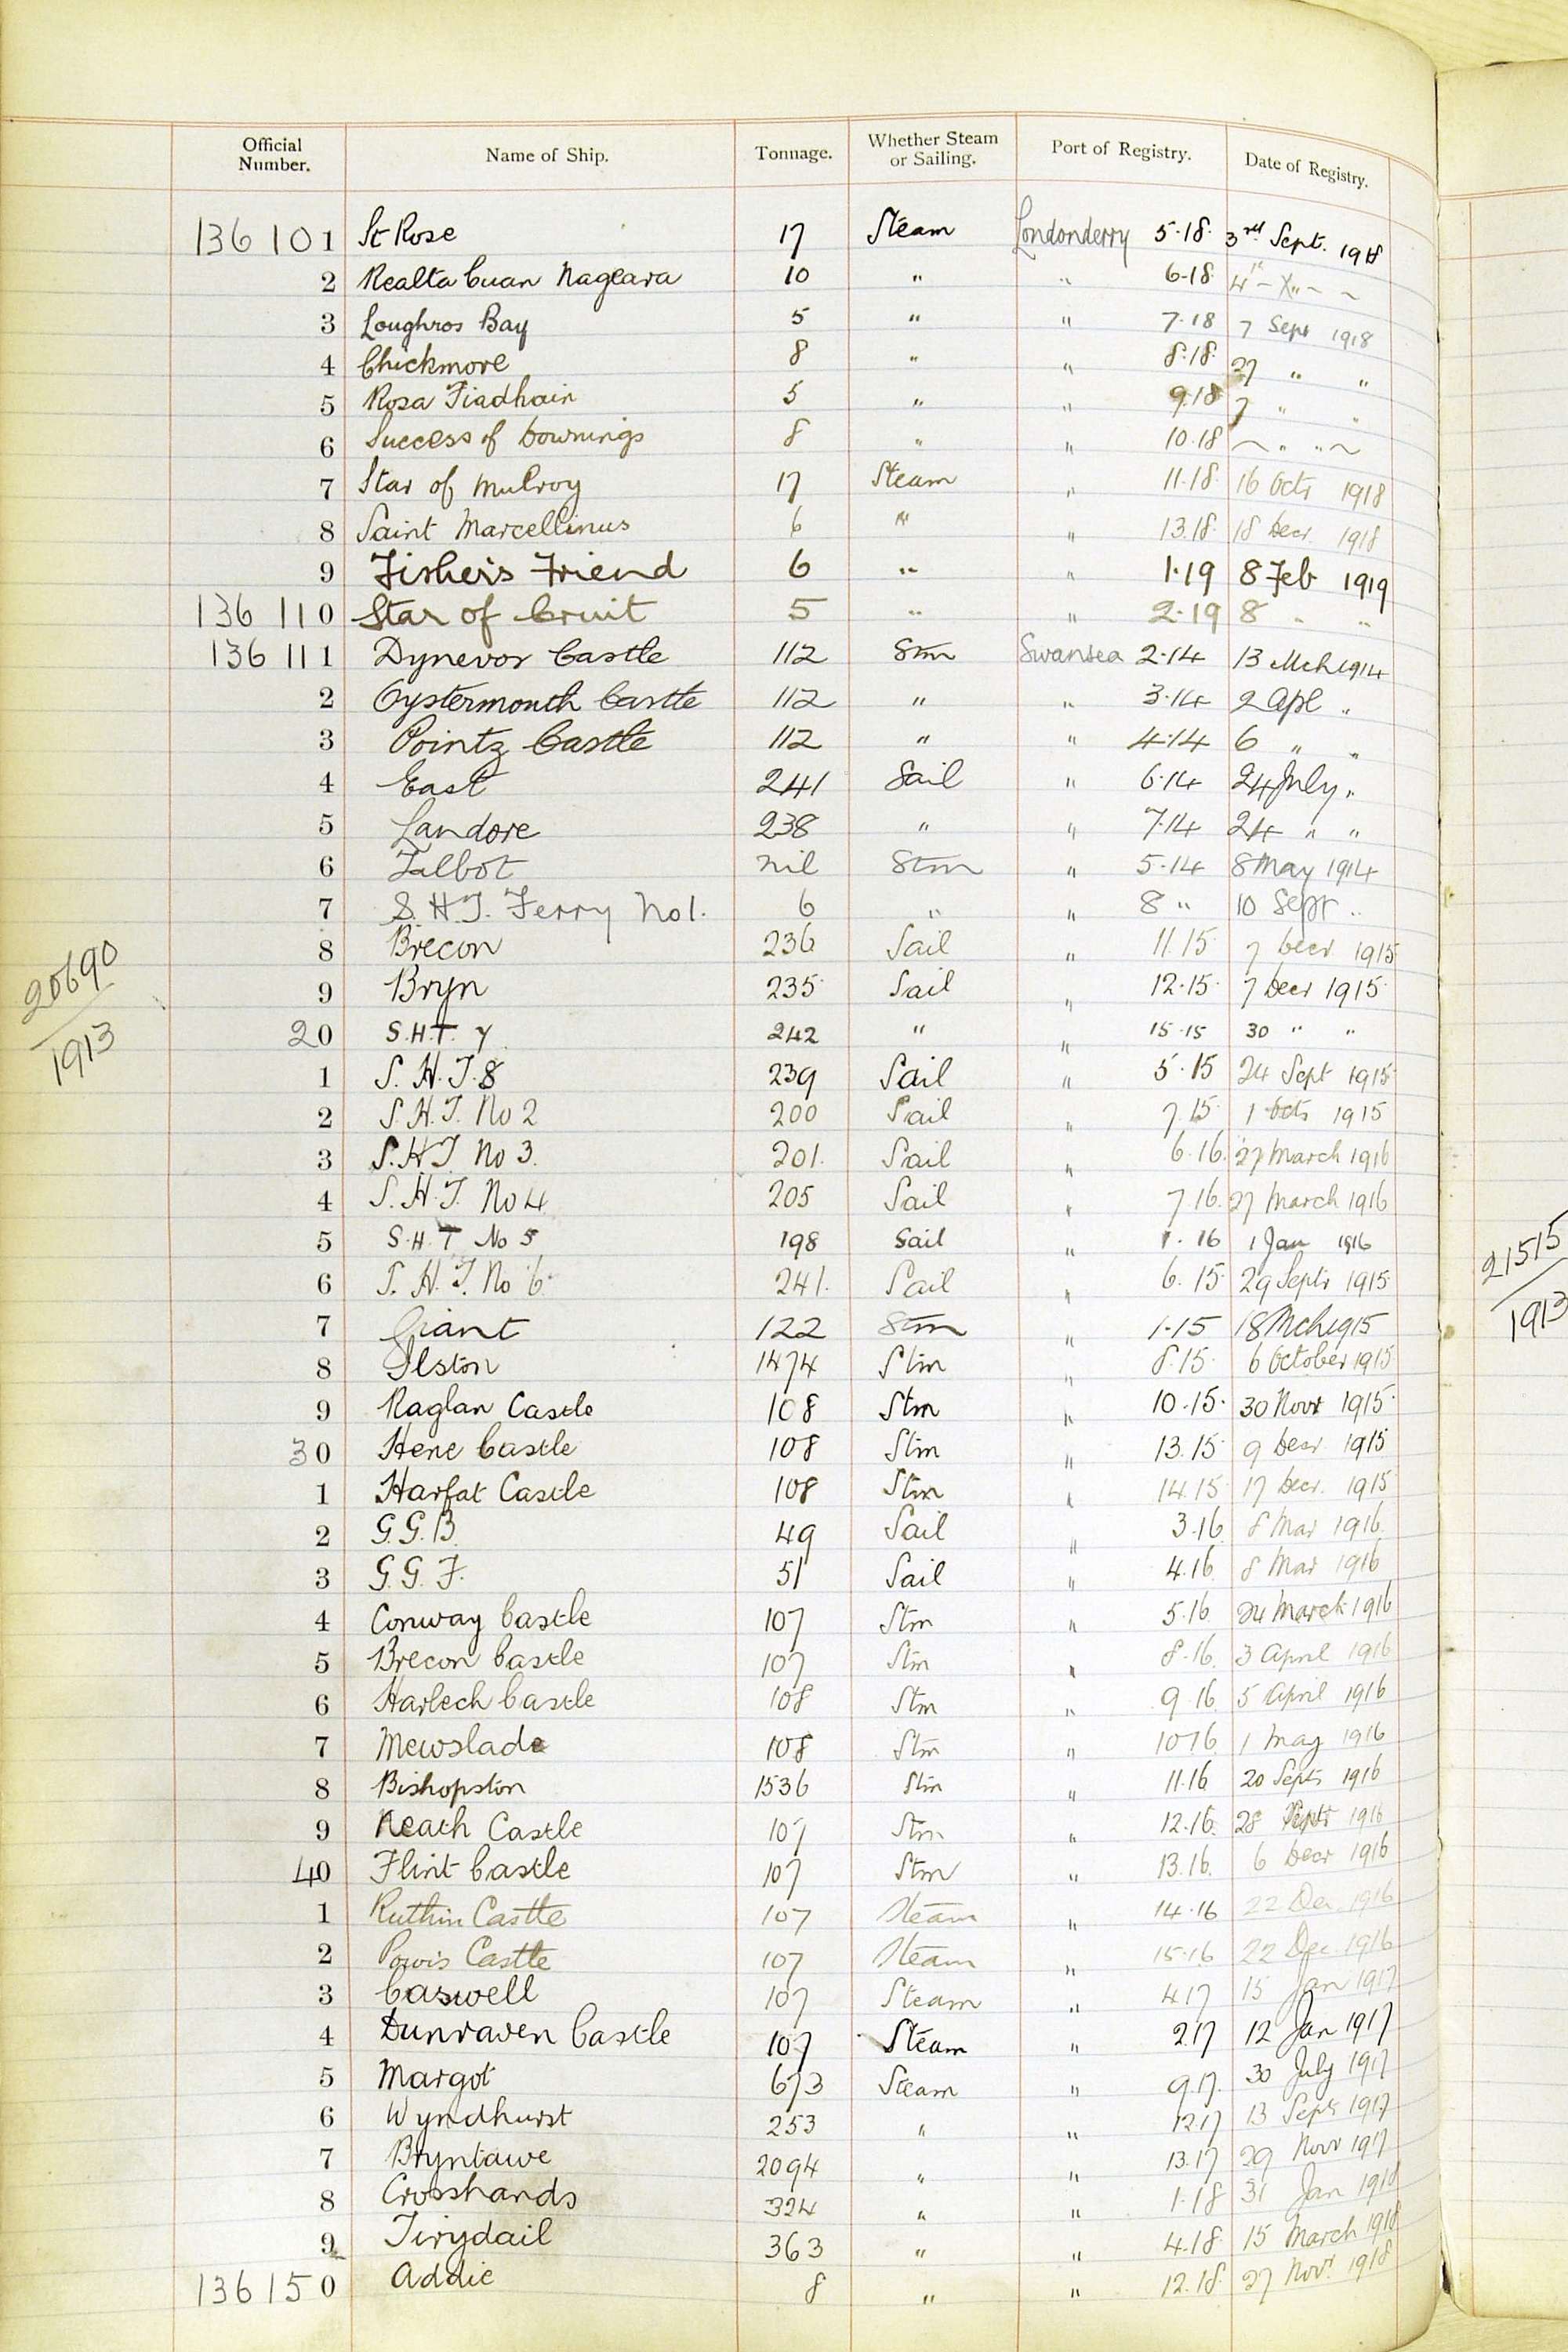 Official Number. Name of Ship. Tonnage. Whether Steam or Sailing. Port of Registry. Date of Registry.
136 101 St Rose 17 Steam Londonderry 5.18. 3rd Sept. 1918
2 Realta Cuan Nageara 10 " " 6.18 4th
3 Loughros Bay 5 " " 7.18 7 Sept 1918
4 Chickmore 8 " " 8.18. 27 " "
5 Rosa Fiadhain 5 " " 9.18 7 " "
6 Success of Downings 8 " " 10.18 " "
7 Star of Mulroy 17 Steam " 11.18. 16 Octr 1918
8 Saint Marcellinus 6 " " 13.18. 18 Decr 1918
9 Fisher's Friend 6 " " 1.19 8 Feb 1919
136 110 Star of Cruit 5 " " 2.19 8 " "
136 111 Dynevor Castle 112 Stm Swansea 2.14 13 Mch 1914
2 Oystermouth Castle 112 " " 3.14 2 Apl "
3 Pointz Castle 112 " " 4.14 6 " "
4 East 241 Sail " 6.14 24 July "
5 Landore 238 " " 7.14 24 " "
6 Talbot nil Stm " 5.14 8 May 1914
7 S.H.T. Ferry No 1. 6 " " 8 " 10 Sept "
8 Brecon 236 Sail " 11.15 7 Decr 1915
9 Bryn 235 Sail " 12.15 7 Decr 1915
20690
1913
20 S.H.T. 7 242 " " 15.15 30 " "
1 S.H.T. 8 239 Sail " 5.15 24 Sept 1915
2 S.H.T. No 2 200 Sail " 7.15 1 Octr 1915
3 S.H.T. No 3. 201. Sail " 6.16. 27 March 1916
4 S.H.T. No 4 205 Sail " 7.16. 27 March 1916
5 S.H.T No 5 198 Sail " 1.16 1 Jan 1916
6 S.H.T. No 6. 241. Sail " 6.15 29 Septr 1915
21515
1913
7 Giant 122 Stm " 1.15 18 Mch 1915
8 Ilston 1474 Stm " 8.15. 6 October 1915
9 Raglan Castle 108 Stm " 10.15. 30 Novr 1915
30 Hene Castle 108 Stm " 13.15 9 Decr 1915
1 Harfat Castle 108 Stm " 14.15 17 Decr. 1915
2 G.G.B. 49 Sail " 3.16 8 Mar 1916.
3 G.G.F. 51 Sail " 4.16. 8 Mar 1916
4 Conway Castle 107 Stm " 5.16. 24 March 1916
5 Brecon Castle 107 Stm " 8.16. 3 April 1916
6 Harlech Castle 108 Stm " 9.16. 5 April 1916
7 Mewslade 108 Stm " 10 16 1 May 1916
8 Bishopston 1536 Stm " 11.16 20 Septr 1916
9 Neath Castle 107 Stm " 12.16. 28 Septr 1916
40 Flint Castle 107 Stm " 13.16. 6 Decr 1916
1 Ruthin Castle 107 Steam " 14.16 22 Dec. 1916
2 Powis Castle 107 Steam " 15.16 22 Dec 1916
3 Caswell 107 Steam " 4.17 15 Jan 1917
4 Dunraven Castle 107 Steam " 2.17 12 Jan 1917
5 Margot 673 Steam " 9.17. 30 July 1917
6 Wyndhurst 253 " " 12.17 13 Septr 1917
7 Bryntawe 2094 " " 13.17 29 Novr 1917
8 Crosshands 324 " " 1.18 31 Jan 1918
9 Tirydail 363 " " 4.18. 15 March 1918
136 150 Addie 8 " " 12.18. 27 Novr 1918